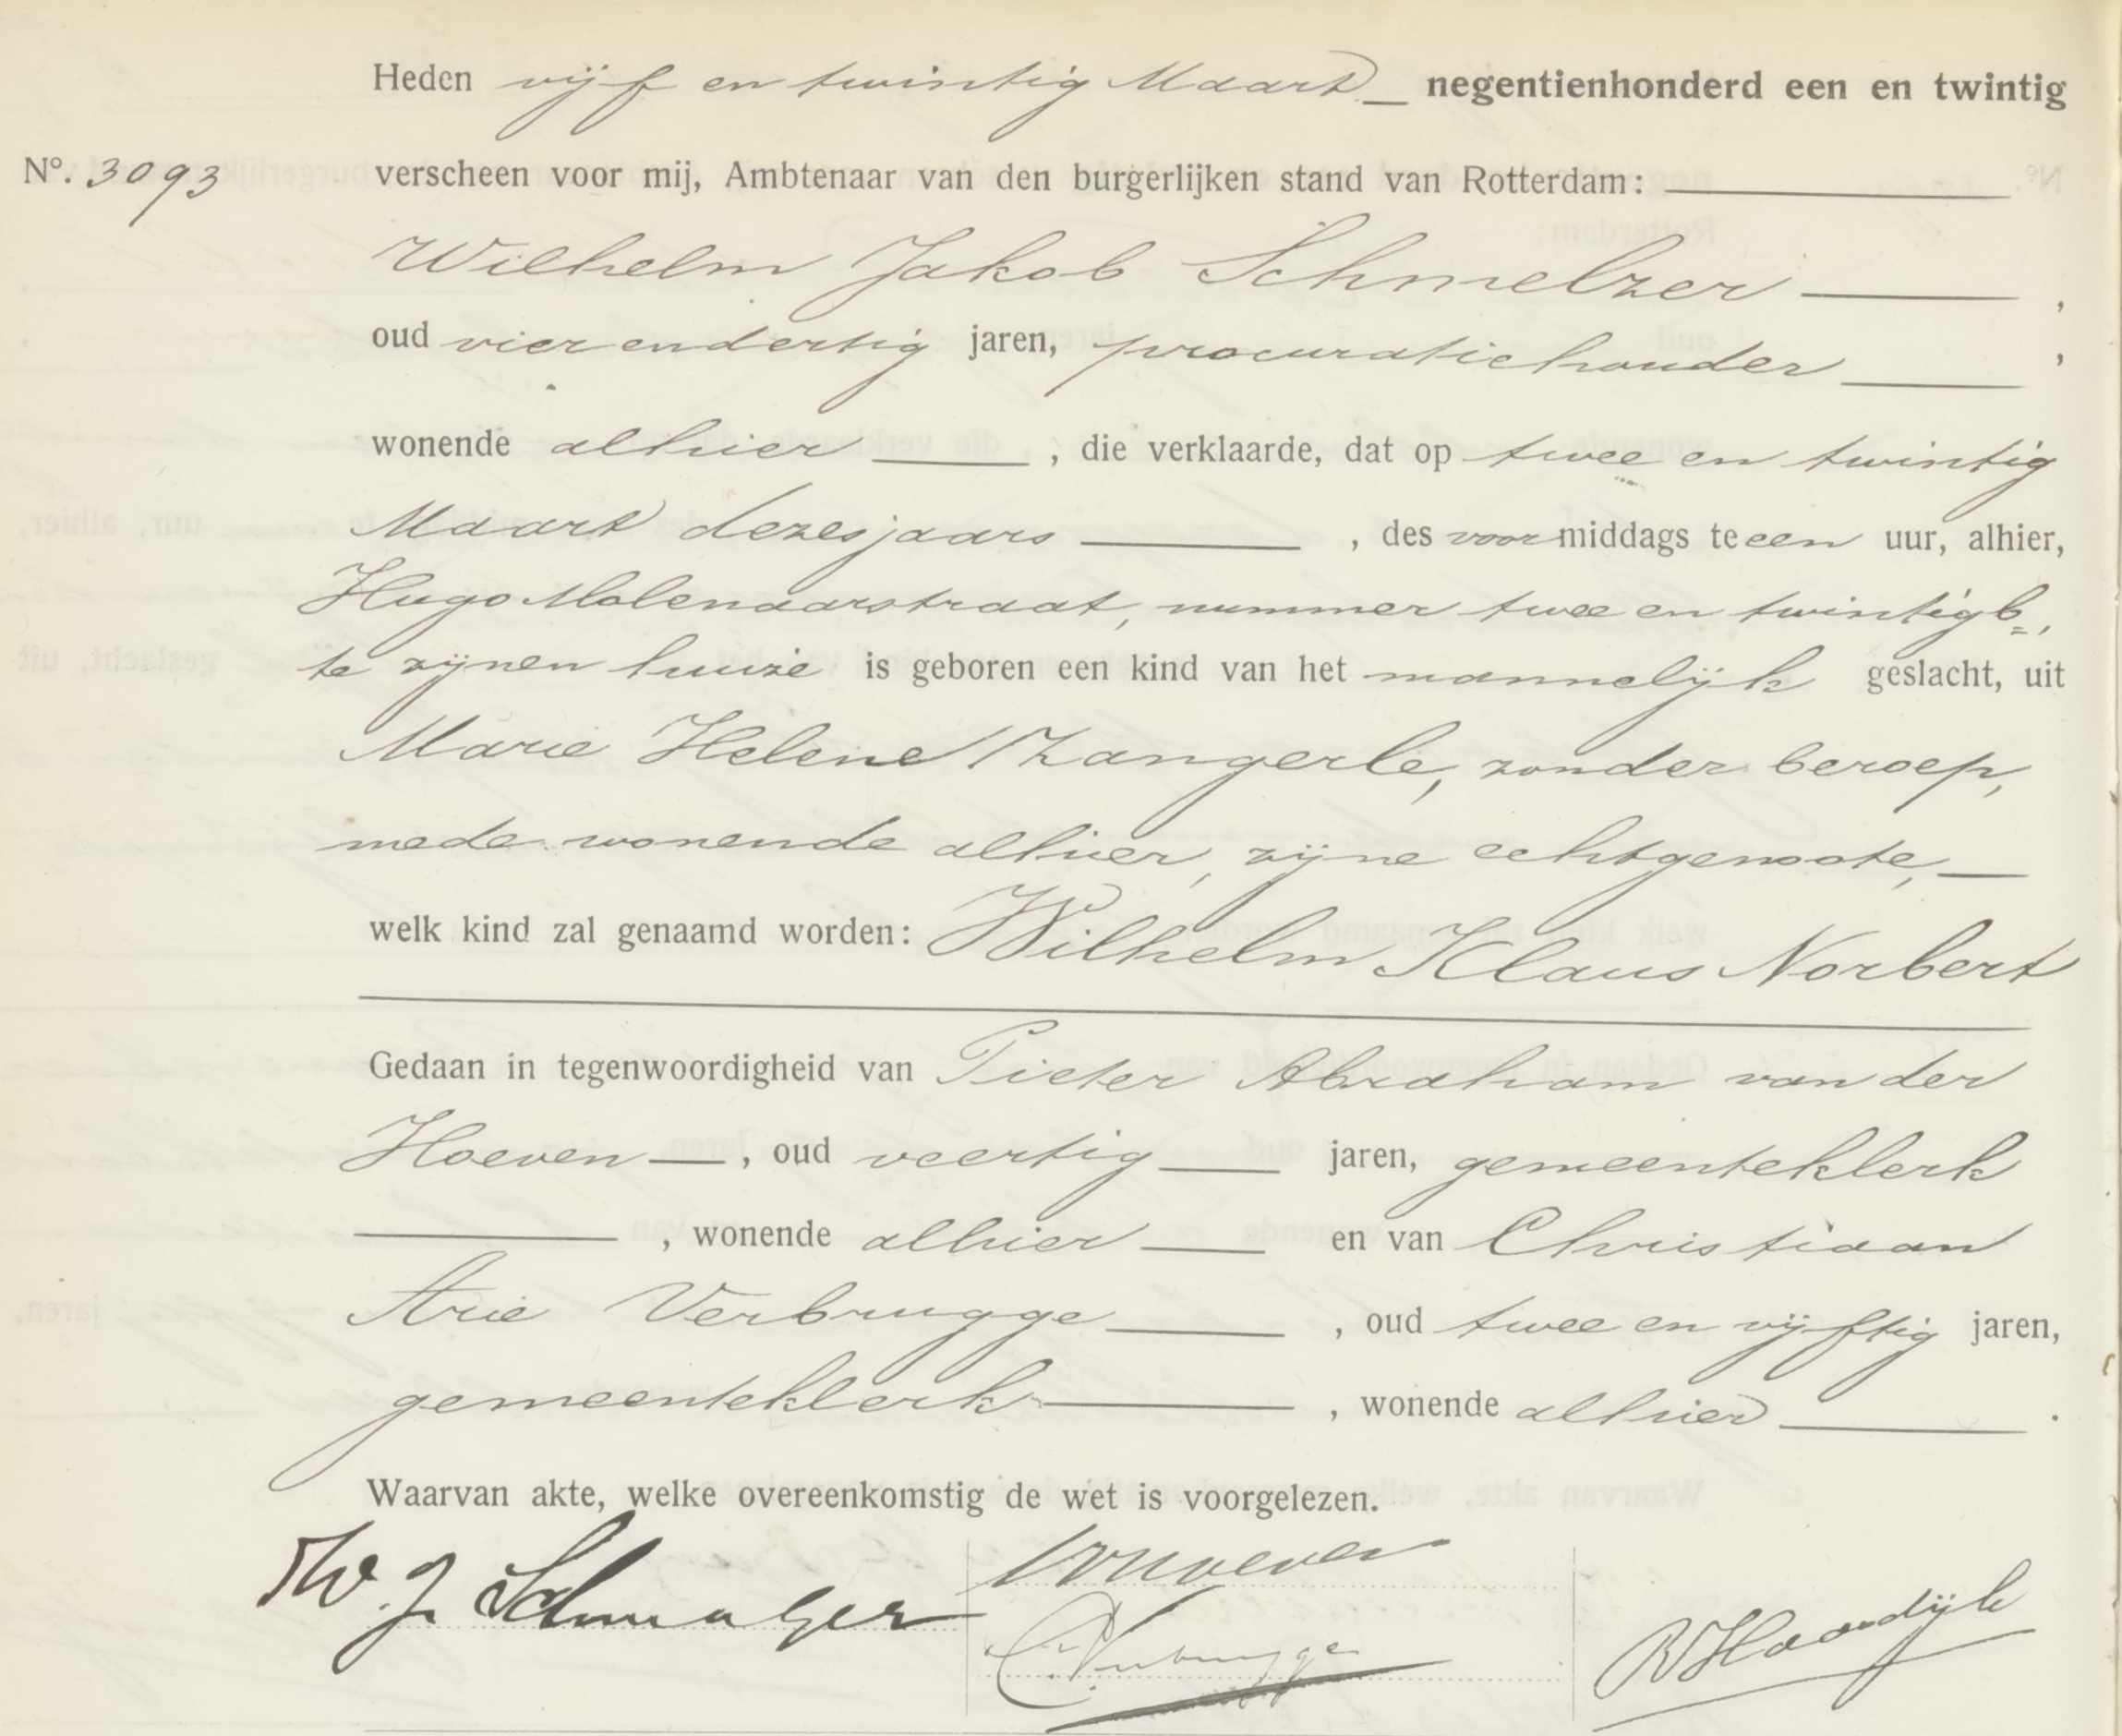 Heden vijf en twintig Maart negentienhonderd een en twintig
No. 3093 verscheen voor mij, Ambtenaar van den burgerlijken stand van Rotterdam:
Wilhelm Jakob Schmelzer,
oud vier en dertig jaren, procuratiehouder,
wonende alhier, die verklaarde, dat op twee en twintig
Maart dezes jaars, des voormiddags te een uur, alhier,
Hugo Molenaarstraat, nummer twee en twintig b,
te zijnen huize is geboren een kind van het mannelijk geslacht, uit
Marie Helene Zangerle, zonder beroep,
mede wonende alhier, zijne echtgenoote,
welk kind zal genaamd worden: Wilhelm Klaus Norbert
Gedaan in tegenwoordigheid van Pieter Abraham van der
Hoeven, oud veertig jaren, gemeenteklerk
, wonende alhier en van Christiaan
Arie Verbrugge, oud twee en vijftig jaren,
gemeenteklerk, wonende alhier.
Waarvan akte, welke overeenkomstig de wet is voorgelezen.
W. J. Schmelzer
C. Verbrugge